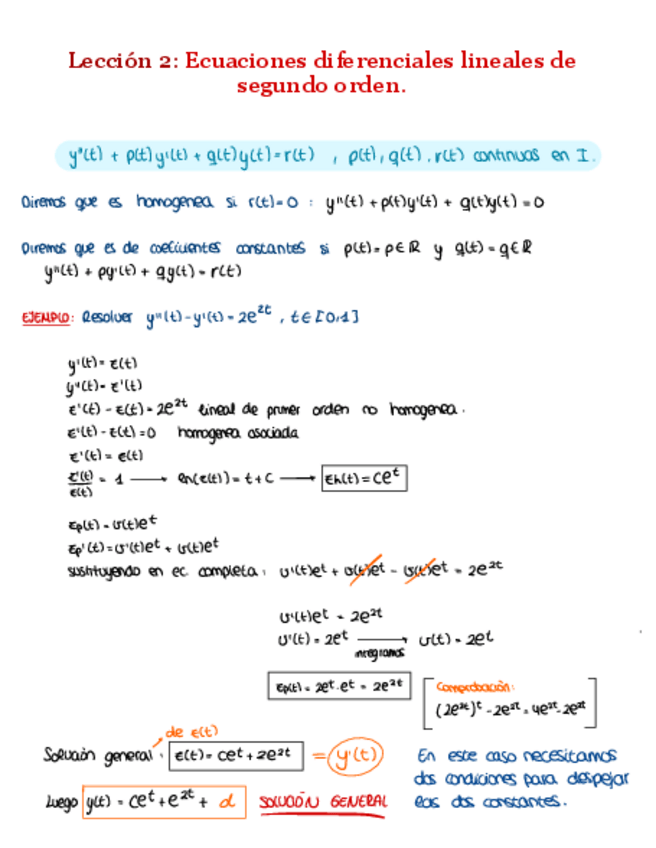 Lección 2: Ecuaciones diferenciales lineales de
segundo orden.
y''(t) + p(t)y'(t) + q(t)y(t) = r(t) , p(t), q(t), r(t) continuas en I.
Diremos que es homogenea si r(t)=0 : y''(t) + p(t)y'(t) + q(t)y(t) = 0
Diremos que es de coeficientes constantes si p(t)=p∈ℝ y q(t)=q∈ℝ
y''(t) + py'(t) + qy(t) = r(t)
EJEMPLO: Resolver y''(t) - y'(t) = 2e^{2t} , t∈[0,1]
y'(t) = z(t)
y''(t) = z'(t)
z'(t) - z(t) = 2e^{2t} lineal de primer orden no homogenea.
z'(t) - z(t) = 0 homogenea asociada
z'(t) = z(t)
z'(t)/z(t) = 1 → ln(z(t)) = t + C → zh(t) = ce^t
zp(t) = v(t)e^t
zp'(t) = v'(t)e^t + v(t)e^t
sustituyendo en ec. completa: v'(t)e^t + v(t)e^t - v(t)e^t = 2e^{2t}
v'(t)e^t = 2e^{2t}
v'(t) = 2e^t → v(t) = 2e^t
integramos
zp(t) = 2e^t·e^t = 2e^{2t}
Comprobación:
(2e^{2t})^t - 2e^{2t} = 4e^{2t} - 2e^{2t}
de z(t)
Solución general: z(t) = ce^t + 2e^{2t} = y'(t)
Luego y(t) = ce^t + e^{2t} + d SOLUCIÓN GENERAL
En este caso necesitamos
dos condiciones para despejar
las dos constantes.